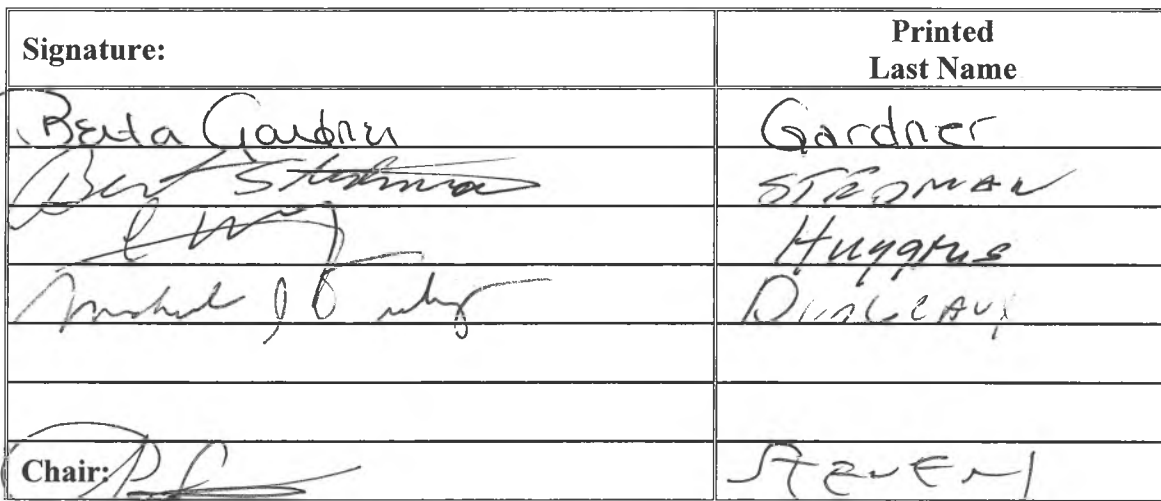 Signature: Printed
Last Name
Berta Gardner Gardner
Bert Stedman STEDMAN
Huggins
Chair: STEVENS